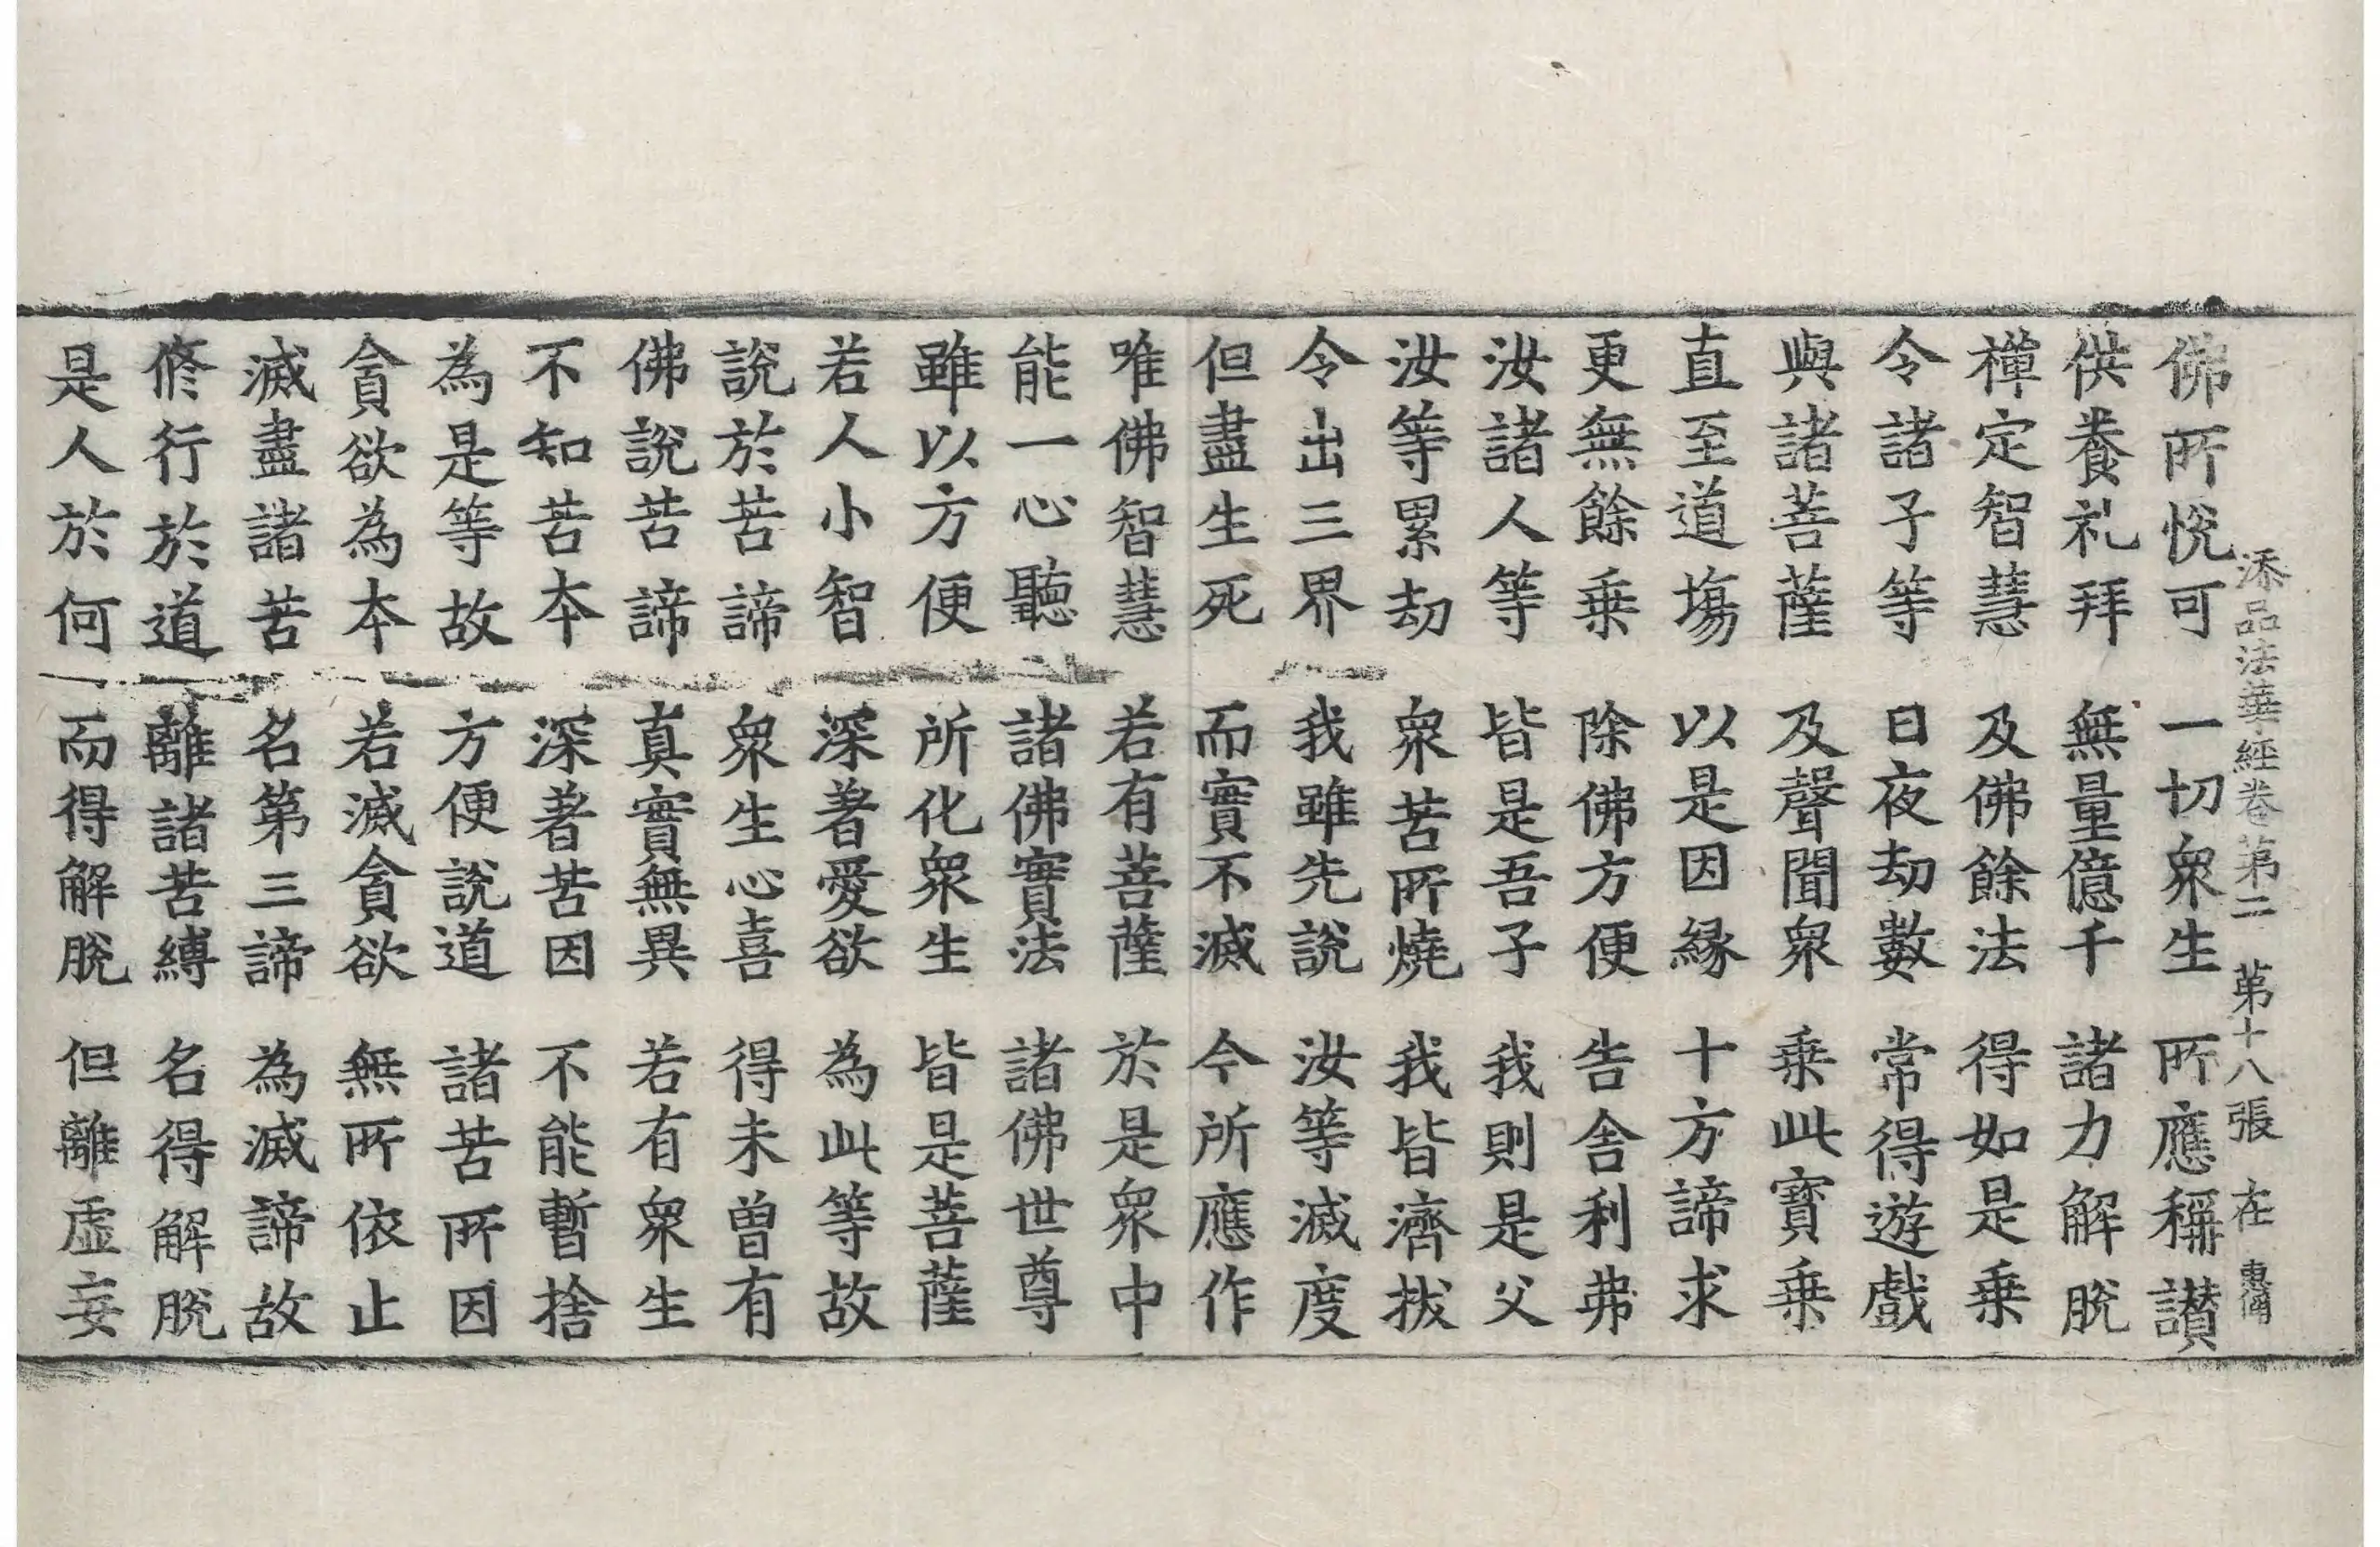 添品法華經卷第二 第十八張 在
佛所悅可 一切衆生 所應稱讃
供養礼拜 無量億千 諸力解脫
禪定智慧 及佛餘法 得如是乗
令諸子等 日夜劫數 常得遊戲
與諸菩薩 及聲聞衆 乗此寶乗
直至道場 以是因緣 十方諦求
更無餘乗 除佛方便 告舍利弗
汝諸人等 皆是吾子 我則是父
汝等累劫 衆苦所燒 我皆濟拔
令出三界 我雖先說 汝等滅度
但盡生死 而實不滅 今所應作
唯佛智慧 若有菩薩 於是衆中
能一心聽 諸佛實法 諸佛世尊
雖以方便 所化衆生 皆是菩薩
若人小智 深著愛欲 為此等故
說於苦諦 衆生心喜 得未曽有
佛說苦諦 真實無異 若有衆生
不知苦本 深著苦因 不能暫捨
為是等故 方便說道 諸苦所因
貪欲為本 若滅貪欲 無所依止
滅盡諸苦 名第三諦 為滅諦故
修行於道 離諸苦縛 名得解脫
是人於何 而得解脫 但離虛妄